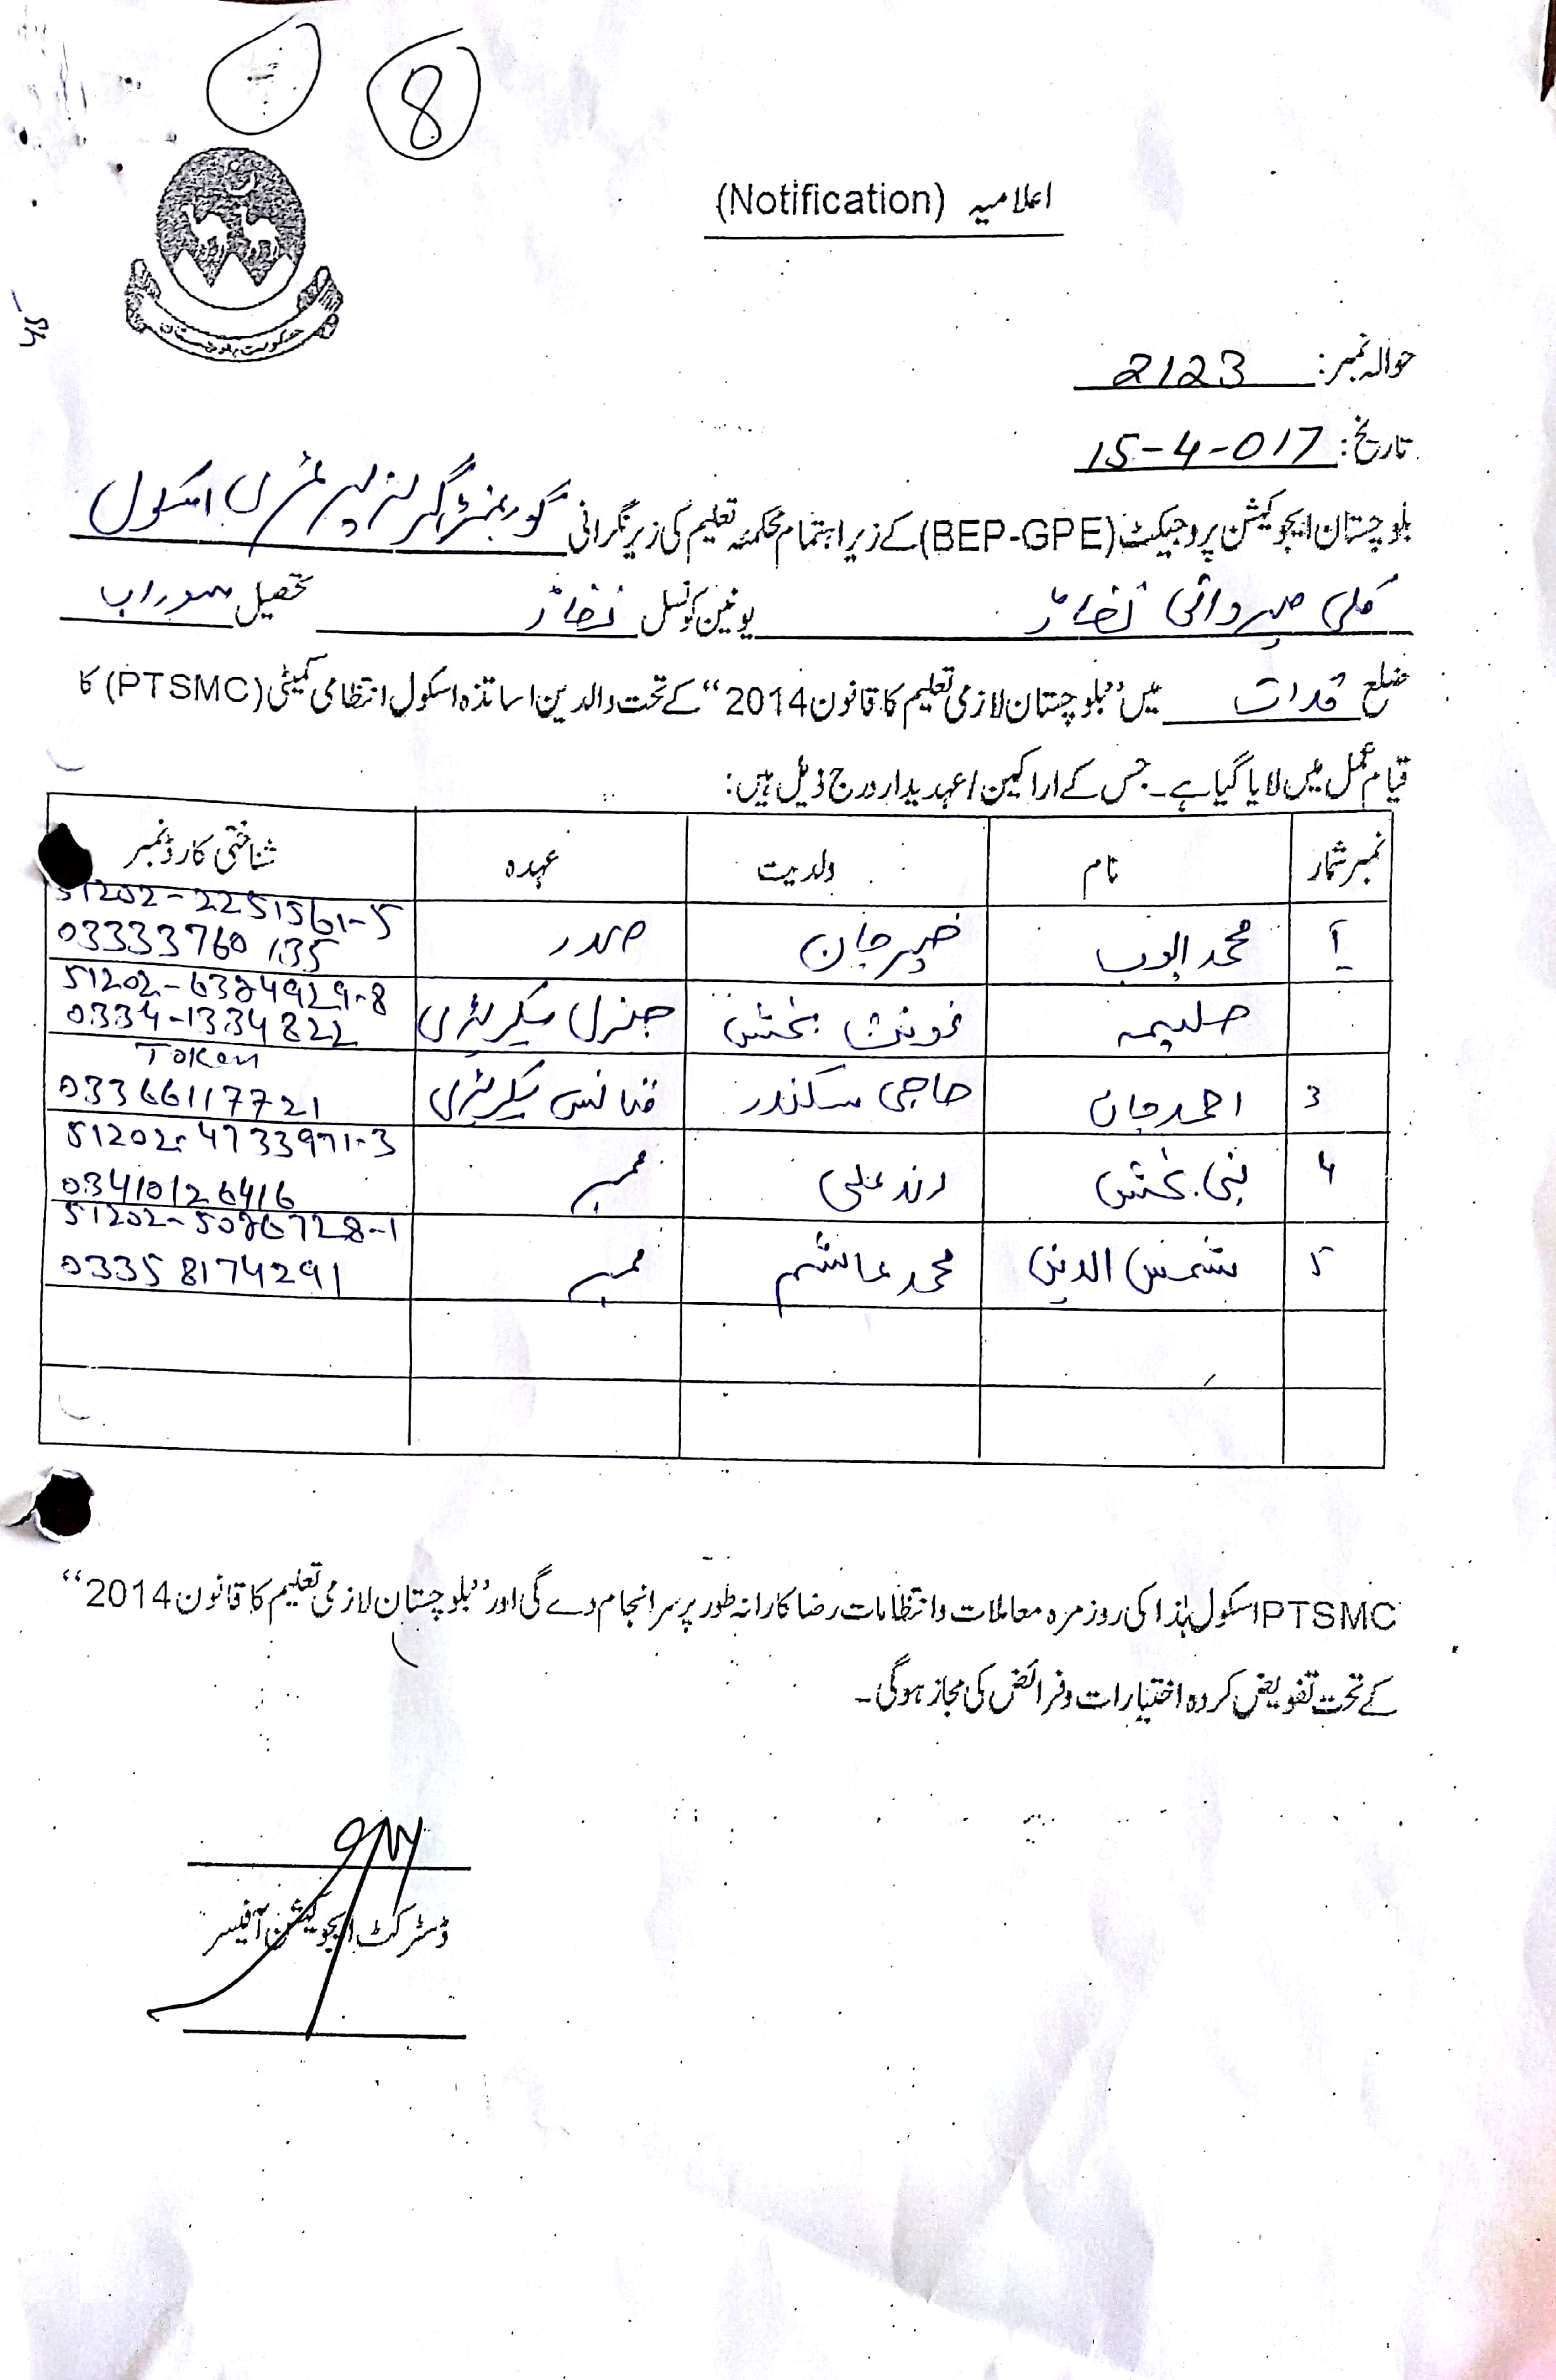 8
اعلامیہ (Notification)
حکومت بلوچستان
حوالہ نمبر: 2123
تاریخ: 15-4-017
بلوچستان ایجوکیشن پروجیکٹ (BEP-GPE) کے زیر اہتمام محکمہ تعلیم کی زیر نگرانی گورنمنٹ گرلز پرائمری اسکول
کلی میروانی یونین کونسل تحصیل سوراب
ضلع قلات میں "بلوچستان لازمی تعلیم کا قانون 2014" کے تحت والدین اساتذہ اسکول انتظامی کمیٹی (PTSMC) کا
قیام عمل میں لایا گیا ہے۔ جس کے اراکین / عہدیدار درج ذیل ہیں:
نمبر شمار نام ولدیت عہدہ شناختی کارڈ نمبر
1 محمد ایوب خیر جان صدر 51202-2251561-5
03333760135
حلیمہ بخش جنرل سیکریٹری 51202-6384929-8
0334-1334822
3 احمد جان حاجی سکندر فنانس سیکریٹری Token
03366117721
4 نبی بخش رند علی ممبر 51202-4733971-3
03410126416
5 شمس الدین محمد ہاشم ممبر 51202-5086728-1
03358174291
PTSMC اسکول ہٰذا کی روزمرہ معاملات و انتظامات رضاکارانہ طور پر سرانجام دے گی اور "بلوچستان لازمی تعلیم کا قانون 2014"
کے تحت تفویض کردہ اختیارات و فرائض کی مجاز ہوگی۔
ڈسٹرکٹ ایجوکیشن آفیسر